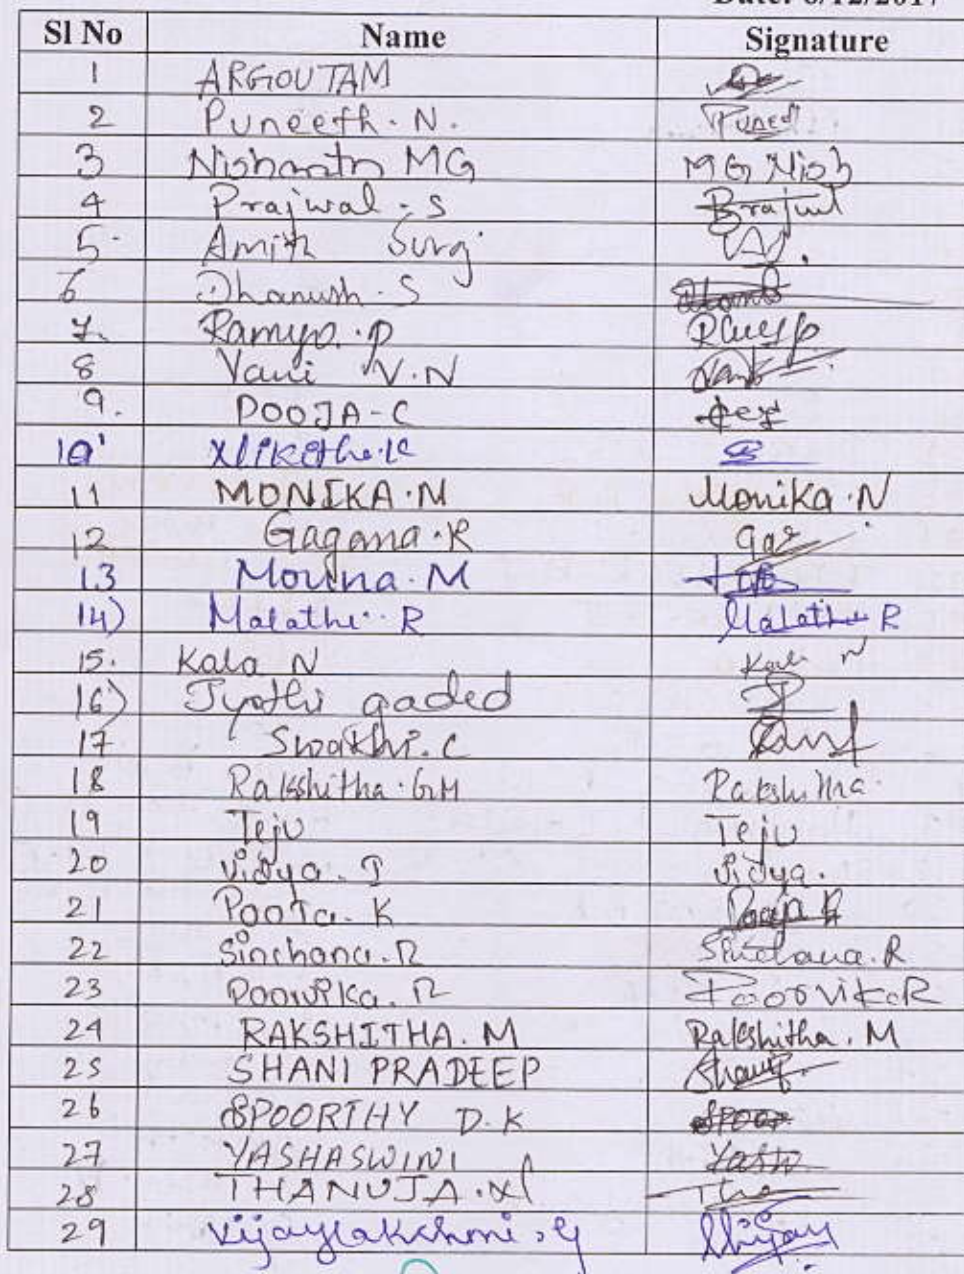 Date: 6/12/2017
Sl No Name Signature
1 ARGOUTAM
2 Puneeth. N. Puneet
3 Nishanth MG MG Nish
4 Prajwal. S Prajwal
5. Amith Suraj
6 Dhanush. S
7. Ramya. P
8 Vani V.N Vani
9. POOJA-C
10 Likitha.K
11 MONIKA.N Monika.N
12 Gagana.R Gag
13 Mouna. M
14) Malathi. R Malathi R
15. Kala N Kala N
16) Jyothi gaded J
17 Swathi. C
18 Rakshitha.GM Rakshitha
19 Teju Teju
20 Vidya. J Vidya.
21 Pooja. K Pooja K
22 Sinchana. R Sinchana.R
23 Poorvika. R Poorvika R
24 RAKSHITHA. M Rakshitha. M
25 SHANI PRADEEP
26 SPOORTHY D.K Spoor
27 YASHASWINI Yashw
28 THANUJA.N
29 Vijaylakshmi.G